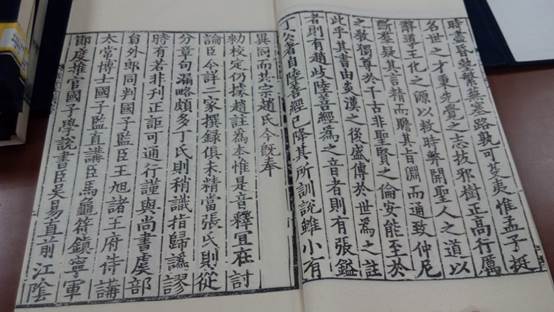 時盡昏墊繁蕪塞路孰可芟夷惟孟子挺
名世之才秉先覺之志拔邪樹正高行厲
辭導王化之源以救時弊開聖人之道以
斷羣疑其言精而贍其旨淵而通致仲尼
之教獨尊於千古非聖賢之倫安能至於
此乎其書由炎漢之後盛傳於世為之註
者則有趙岐陸善經為之音者則有張鎰
丁公著自陸善經已降其所訓說雖小有
異同而共宗趙氏今既奉
勑校定仍據趙註為本惟是音釋宜在討
論臣今詳二家撰録俱未精當張氏則徒
分章句漏略頗多丁氏則稍識指歸譌謬
時有若非刊正詎可通行謹與尚書虞部
貟外郎同判國子監臣王旭諸王府侍講
太常博士國子監直講臣馬龜符鎮寧軍
節度推官國子學說書臣吳易直前江陰